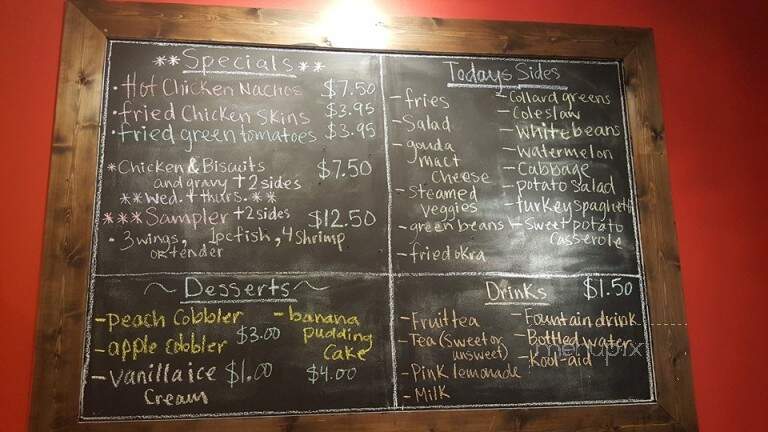 **Specials**
• Hot Chicken Nachos $7.50
• fried Chicken Skins $3.95
• fried green tomatoes $3.95
*Chicken & Biscuits $7.50
and gravy + 2 sides
**Wed. + thurs.**
***Sampler +2 sides $12.50
• 3 wings, 1pc fish, 4 Shrimp
or tender
Todays Sides
- fries
- Salad
- gouda
mact
Cheese
- Steamed
veggies
- green beans
- fried okra
- Collard greens
- Coleslaw
- White beans
- watermelon
- Cabbage
- potato salad
- turkey spaghetti
- Sweet potato
Casserole
~ Desserts ~
- peach Cobbler
- apple Cobbler $3.00
- vanilla ice $1.00
Cream
- banana
pudding
Cake
$4.00
Drinks $1.50
- Fruit tea
- Tea (Sweet or
unsweet)
- Pink lemonade
- Milk
- Fountain drink
- Bottled water
- Kool-aid
menupix